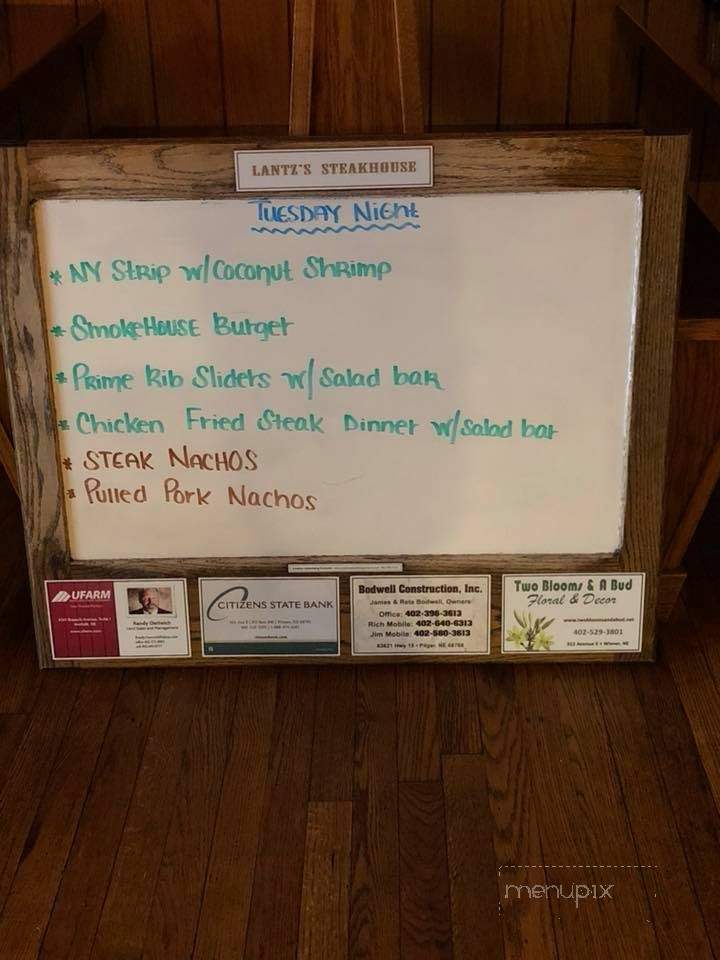 LANTZ'S STEAKHOUSE
TUESDAY NIGHT
* NY STRIP w/Coconut Shrimp
* SmokeHOUSE Burger
* PRIME Rib Sliders w/ Salad bar
* Chicken Fried Steak Dinner w/Salad bar
* STEAK NACHOS
* Pulled Pork Nachos
UFARM
Randy Oertwich
CITIZENS STATE BANK
Bodwell Construction, Inc.
James & Reta Bodwell, Owners
Office: 402-396-3613
Rich Mobile: 402-640-6313
Jim Mobile: 402-580-3613
83621 Hwy 15 • Pilger, NE 68768
Two Blooms & A Bud
Floral & Decor
www.twobloomsandabud.net
402-529-3801
menupix